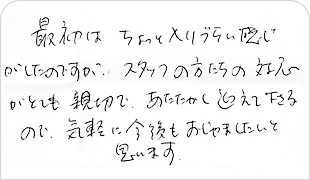 最初は ちょっと入りづらい感じ
がしたのですが、スタッフの方たちの対応
がとても親切で、あたたかく迎えて下さる
ので、気軽に今後もおじゃましたいと
思います。